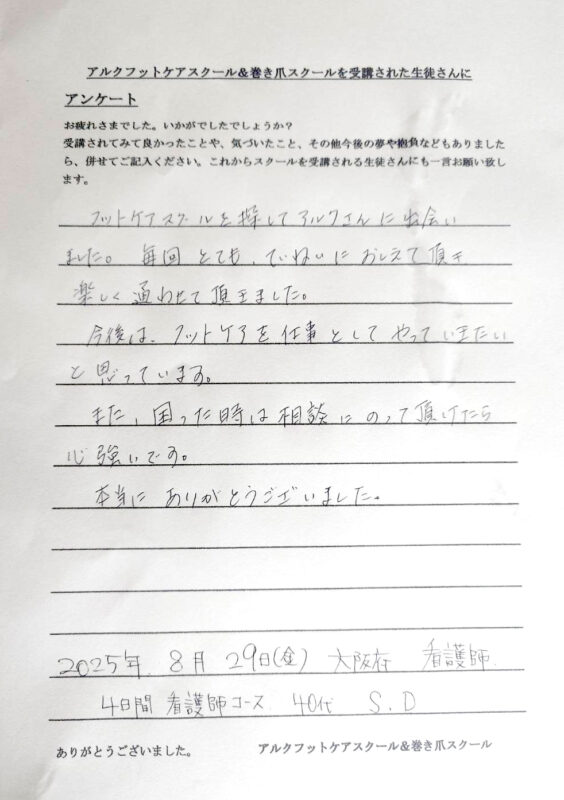 アルクフットケアスクール&巻き爪スクールを受講された生徒さんに
アンケート
お疲れさまでした。いかがでしたでしょうか?
受講されてみて良かったことや、気づいたこと、その他今後の夢や抱負などもありました
ら、併せてご記入ください。これからスクールを受講される生徒さんにも一言お願い致し
ます。
フットケアスクールを探してアルクさんに出会い
ました。毎回とても、ていねいにおしえて頂き
楽しく通わせて頂きました。
今後は、フットケアを仕事としてやっていきたい
と思っています。
また、困った時は相談にのって頂けたら
心強いです。
本当にありがとうございました。
2025年 8月 29日(金) 大阪府 看護師
4日間 看護師コース 40代 S.D
ありがとうございました。 アルクフットケアスクール&巻き爪スクール